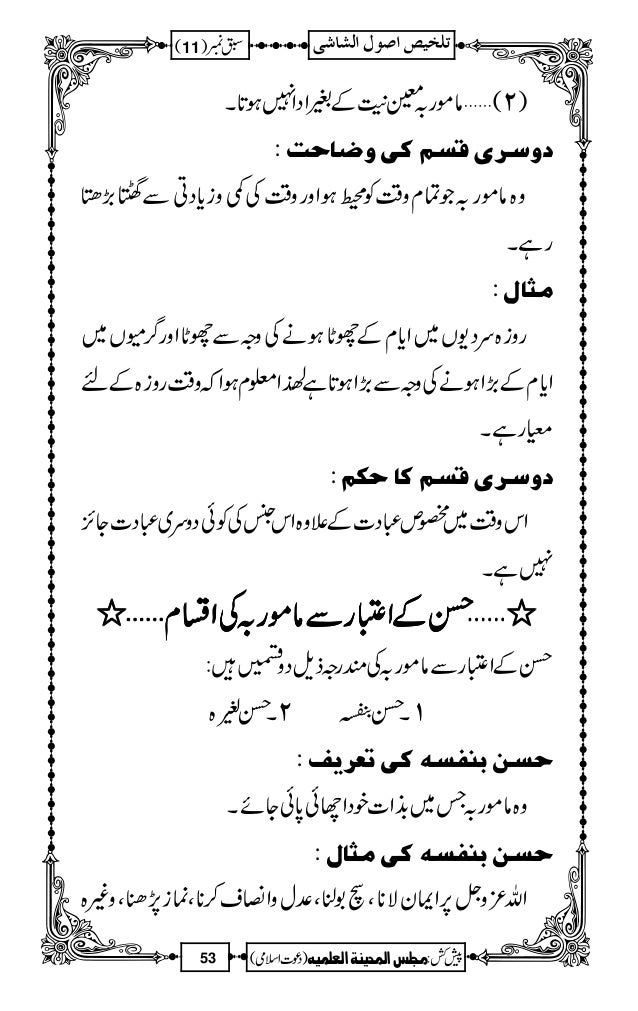 تلخیص اصول الشاشی
سبق نمبر (11)
(۲)......مامور بہ معین نیت کے بغیر ادا نہیں ہوتا۔
دوسری قسم کی وضاحت :
وہ مامور بہ جو تمام وقت کو محیط ہو اور وقت کی کمی و زیادتی سے گھٹتا بڑھتا
رہے۔
مثال :
روزہ سردیوں میں ایام کے چھوٹا ہونے کی وجہ سے چھوٹا اور گرمیوں میں
ایام کے بڑا ہونے کی وجہ سے بڑا ہوتا ہے لھذا معلوم ہوا کہ وقت روزہ کے لئے
معیار ہے۔
دوسری قسم کا حکم :
اس وقت میں مخصوص عبادت کے علاوہ اس جنس کی کوئی دوسری عبادت جائز
نہیں ہے۔
☆......حسن کے اعتبار سے مامور بہ کی اقسام......☆
حسن کے اعتبار سے مامور بہ کی مندرجہ ذیل دو قسمیں ہیں:
۱۔حسن بنفسہ ۲۔حسن لغیرہ
حسن بنفسہ کی تعریف :
وہ مامور بہ جس میں بذات خود اچھائی پائی جائے۔
حسن بنفسہ کی مثال :
اللہ عزوجل پر ایمان لانا، سچ بولنا، عدل و انصاف کرنا، نماز پڑھنا، وغیرہ
پیش کش: مجلس المدینة العلمیه (دعوت اسلامی)
53